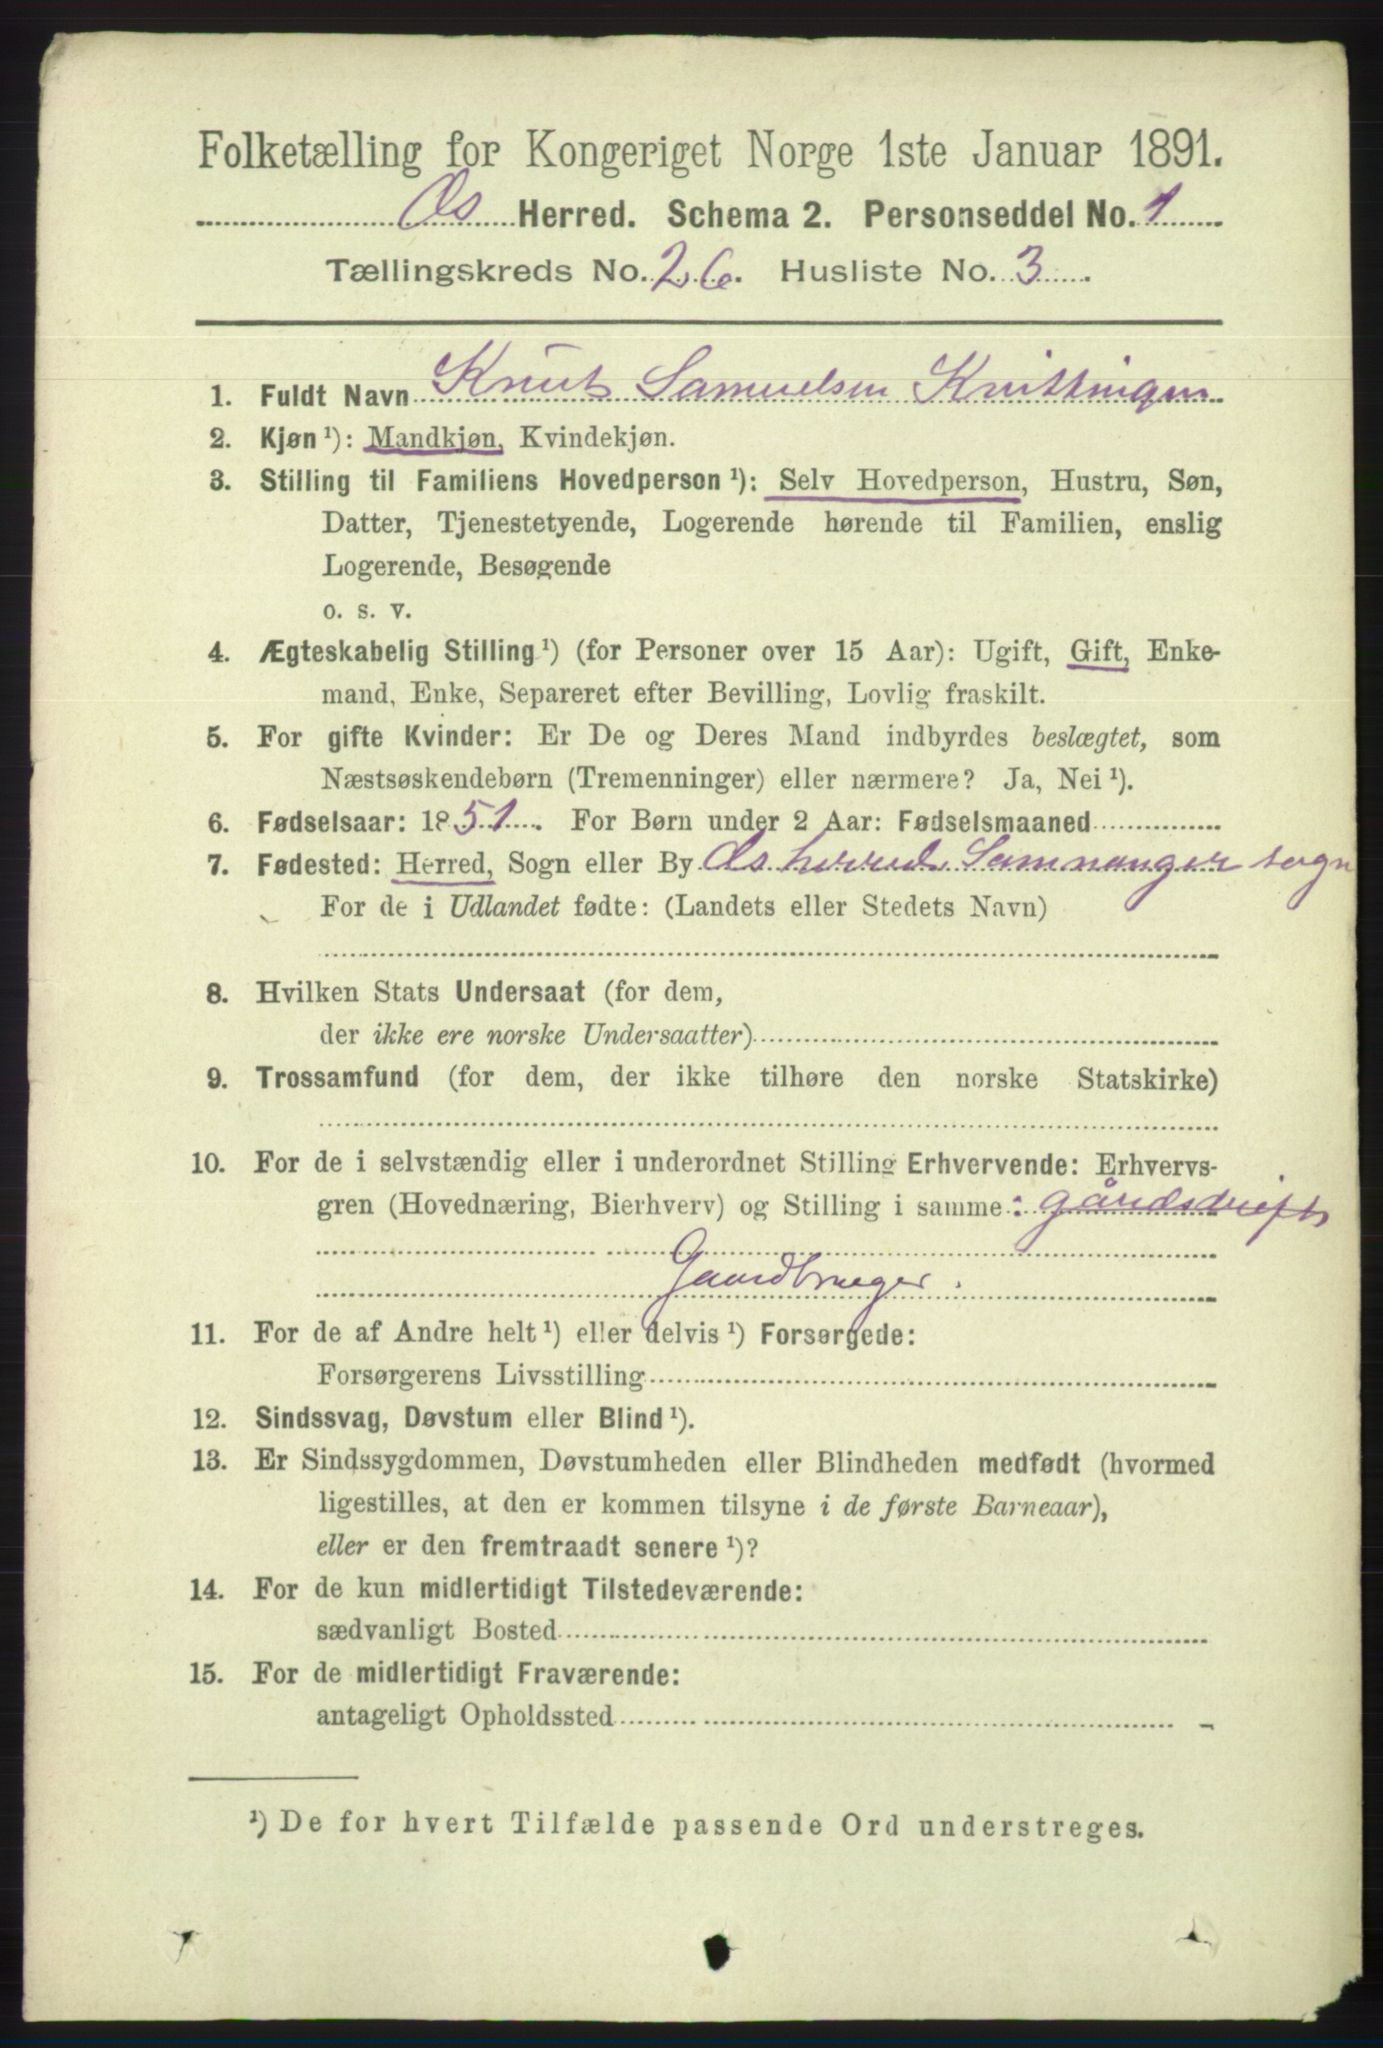 Folketælling for Kongeriget Norge 1ste Januar 1891.
Os Herred. Schema 2. Personseddel No. 1
Tællingskreds No. 26. Husliste No. 3.
1. Fuldt Navn Knut Samuelsen Kvittingen
2. Kjøn ¹): Mandkjøn, Kvindekjøn.
3. Stilling til Familiens Hovedperson ¹): Selv Hovedperson, Hustru, Søn,
Datter, Tjenestetyende, Logerende hørende til Familien, enslig
Logerende, Besøgende
o. s. v.
4. Ægteskabelig Stilling ¹) (for Personer over 15 Aar): Ugift, Gift, Enke-
mand, Enke, Separeret efter Bevilling, Lovlig fraskilt.
5. For gifte Kvinder: Er De og Deres Mand indbyrdes beslægtet, som
Næstsøskendebørn (Tremenninger) eller nærmere? Ja, Nei ¹).
6. Fødselsaar: 1851. For Børn under 2 Aar: Fødselsmaaned
7. Fødested: Herred, Sogn eller By Os herred Samnanger sogn
For de i Udlandet fødte: (Landets eller Stedets Navn)
8. Hvilken Stats Undersaat (for dem,
der ikke ere norske Undersaatter)
9. Trossamfund (for dem, der ikke tilhøre den norske Statskirke)
10. For de i selvstændig eller i underordnet Stilling Erhvervende: Erhvervs-
gren (Hovednæring, Bierhverv) og Stilling i samme: gårdsdrift
Gaardbruger.
11. For de af Andre helt ¹) eller delvis ¹) Forsørgede:
Forsørgerens Livsstilling
12. Sindssvag, Døvstum eller Blind ¹).
13. Er Sindssygdommen, Døvstumheden eller Blindheden medfødt (hvormed
ligestilles, at den er kommen tilsyne i de første Barneaar),
eller er den fremtraadt senere ¹)?
14. For de kun midlertidigt Tilstedeværende:
sædvanligt Bosted
15. For de midlertidigt Fraværende:
antageligt Opholdssted
¹) De for hvert Tilfælde passende Ord understreges.